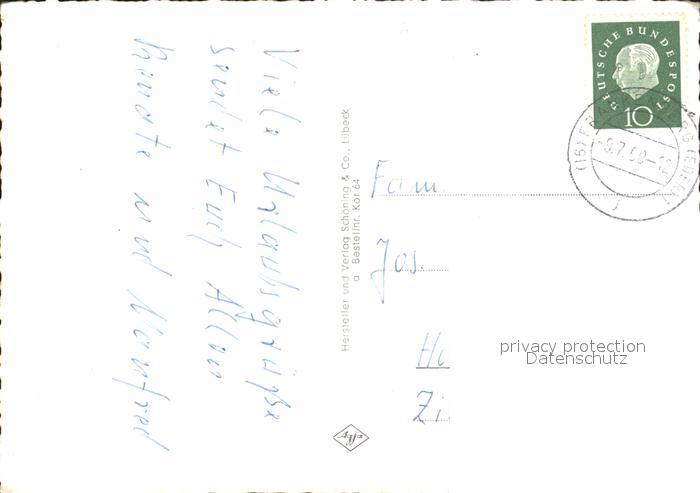 Viele Urlaubsgrüße
sendet Euch Allen
Renate und Manfred
Hersteller und Verlag Schöning & Co., Lübeck
a Bestellnr. Kor 64
Agfa
DEUTSCHE BUNDESPOST
10
(16)
-9.7.60-12
Fam.
Jos.
Hu
Zi
privacy protection
Datenschutz